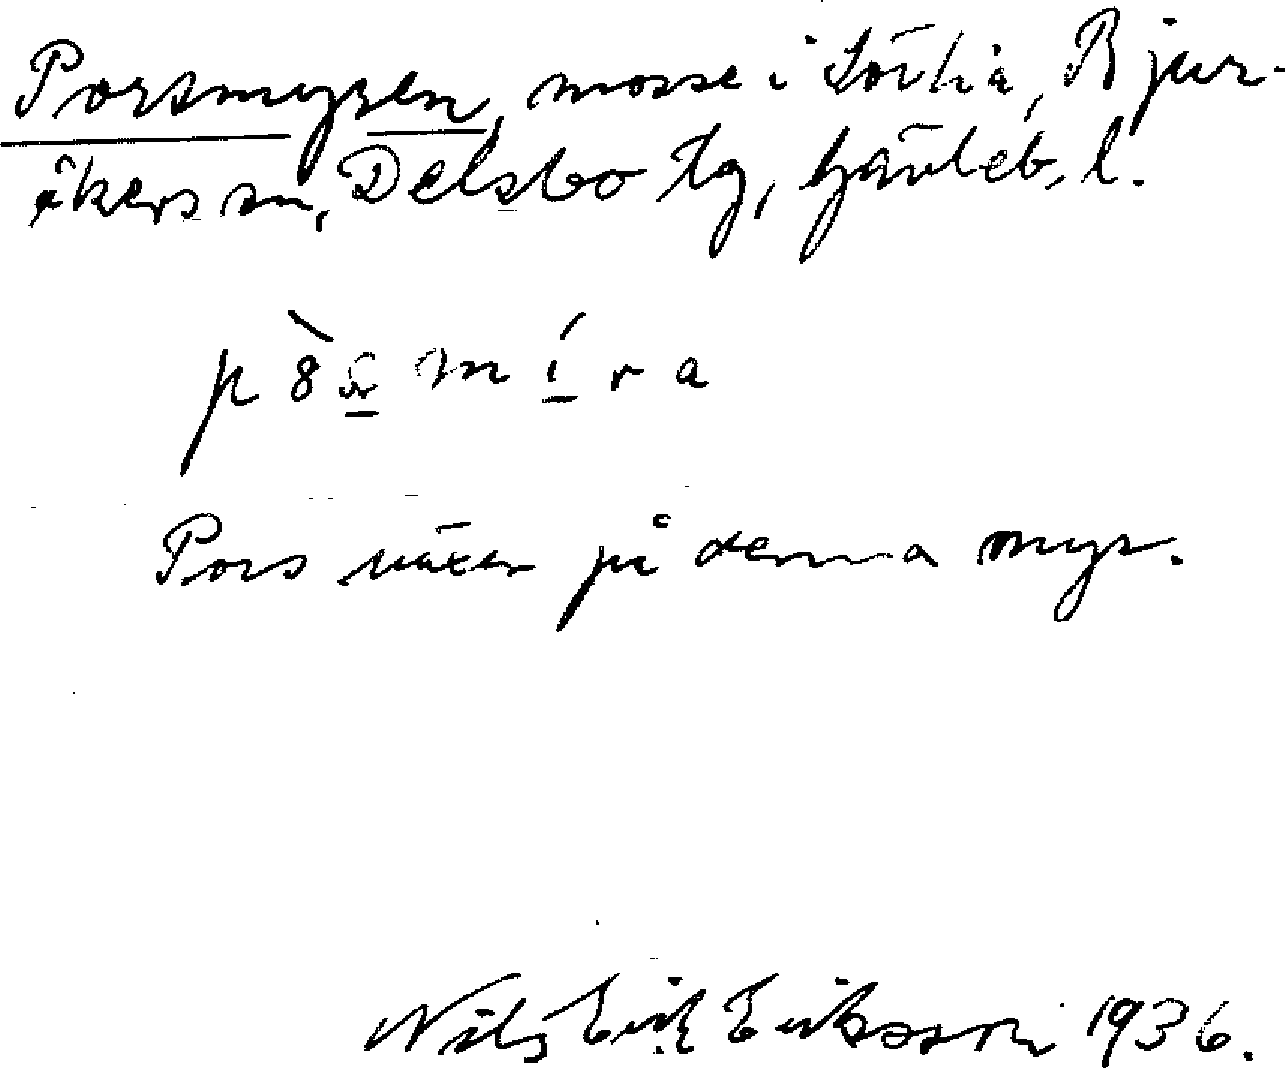 Porsmyren, mosse i Sörhå, Bjur-
åkers sn, Delsbo tg, Gävleb. l.
Pors växer på denna myr.
Nils Erik Eriksson 1936.